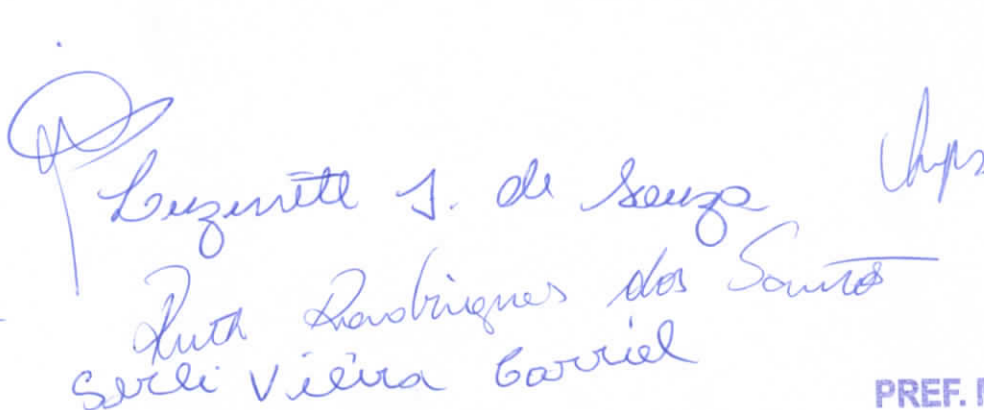 Luzinete J. de Souza
Ruth Rodrigues dos Santos
Serli Vieira Carriel
PREF.